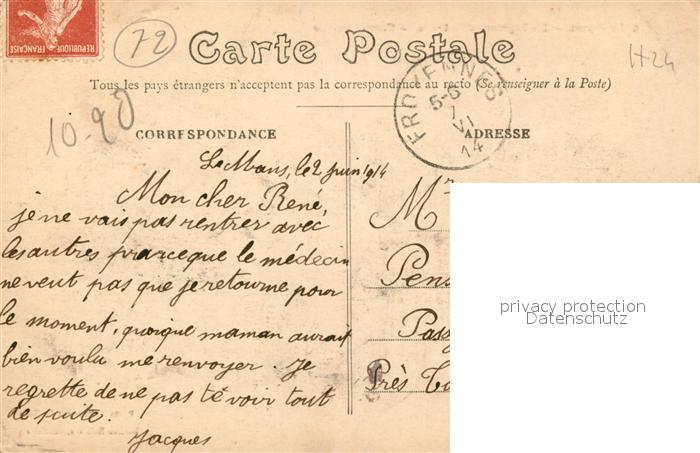 RÉPUBLIQUE FRANÇAISE
72
Carte Postale
H24
Tous les pays étrangers n'acceptent pas la correspondance au recto (Se renseigner à la Poste)
10-90
FROYENNES
5-6
1
VI
14
CORRESPONDANCE
ADRESSE
Le Mans, le 2 juin 1914
Mon cher René,
je ne vais pas rentrer avec
les autres parceque le médecin
ne veut pas que je retourne pour
le moment, quoique maman aurait
bien voulu me renvoyer. Je
regrette de ne pas te voir tout
de suite.
Jacques
Mr
Pens
Pass
Près
privacy protection
Datenschutz